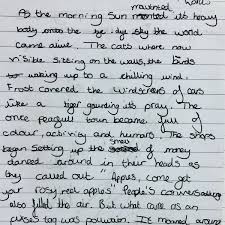 mounted
As the morning Sun its heavy
body onto the sky the world
came alive. The cats where now
visible sitting on the walls, the birds
waking up to a chilling wind.
Frost covered the windscreens of cars
like a tiger gaurding its pray. The
once peacefull town became full of
colour, activity and humans. The shops
began setting up the smell of money
danced around in their heads as
they called out "Apples, come get
your rosy red apples" People's conversation
also filled the air. But what came as an
tag was pollution. It moved around